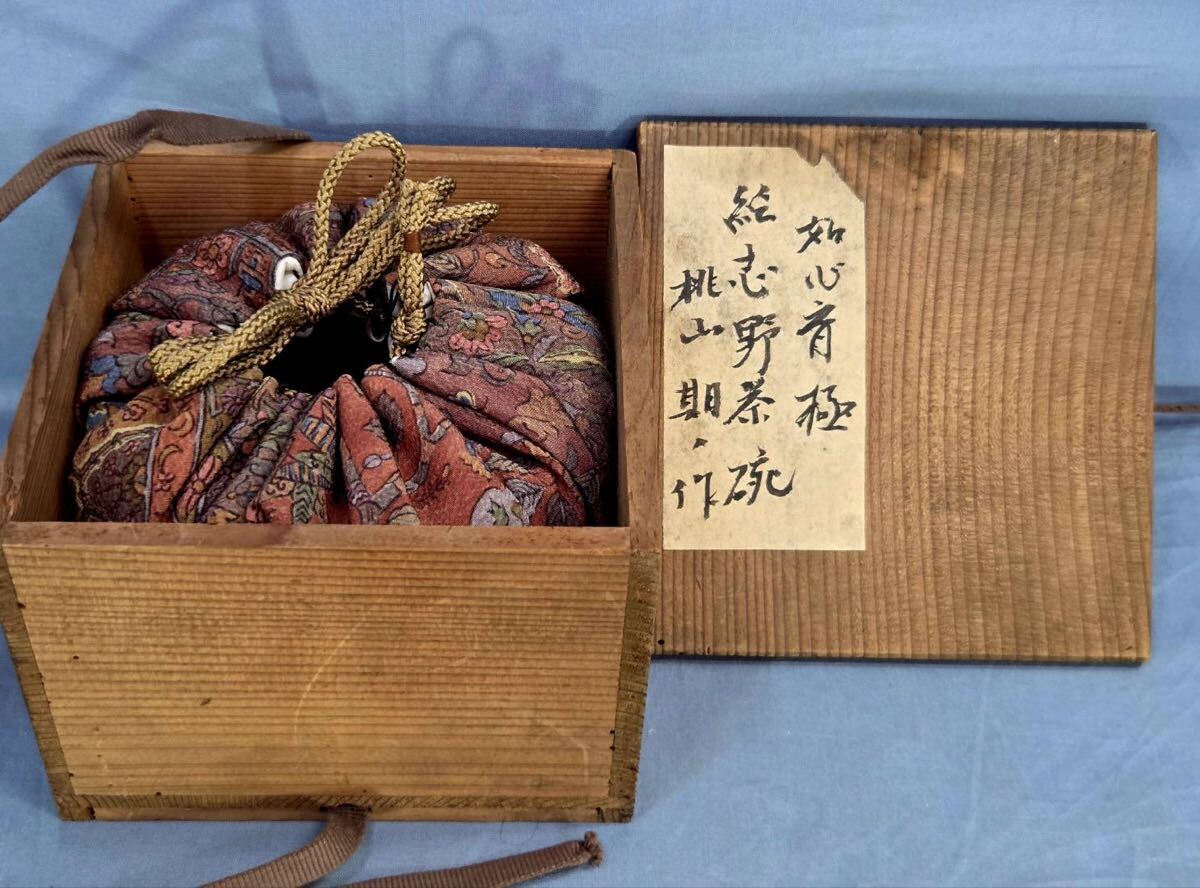 如心斎 極
絵志野茶碗
桃山期、作